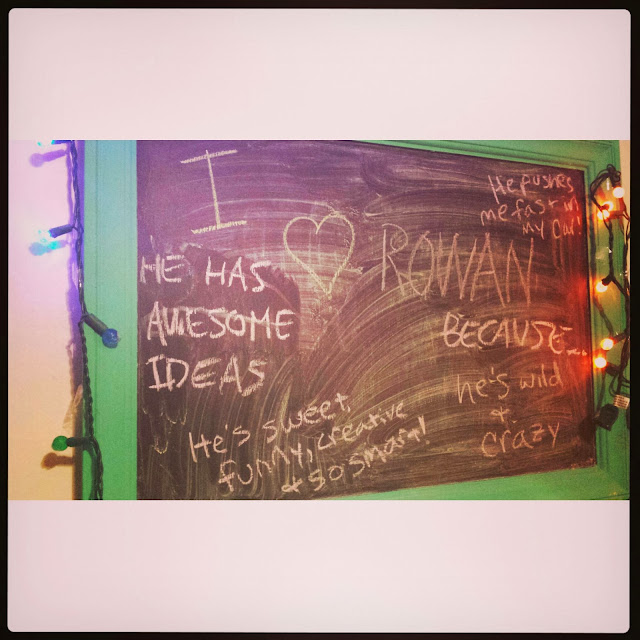 I
♡ ROWAN
BECAUSE...
He pushes
me fast in
my car!
HE HAS
AWESOME
IDEAS
He's sweet,
funny, creative
& so smart!
he's wild
&
crazy